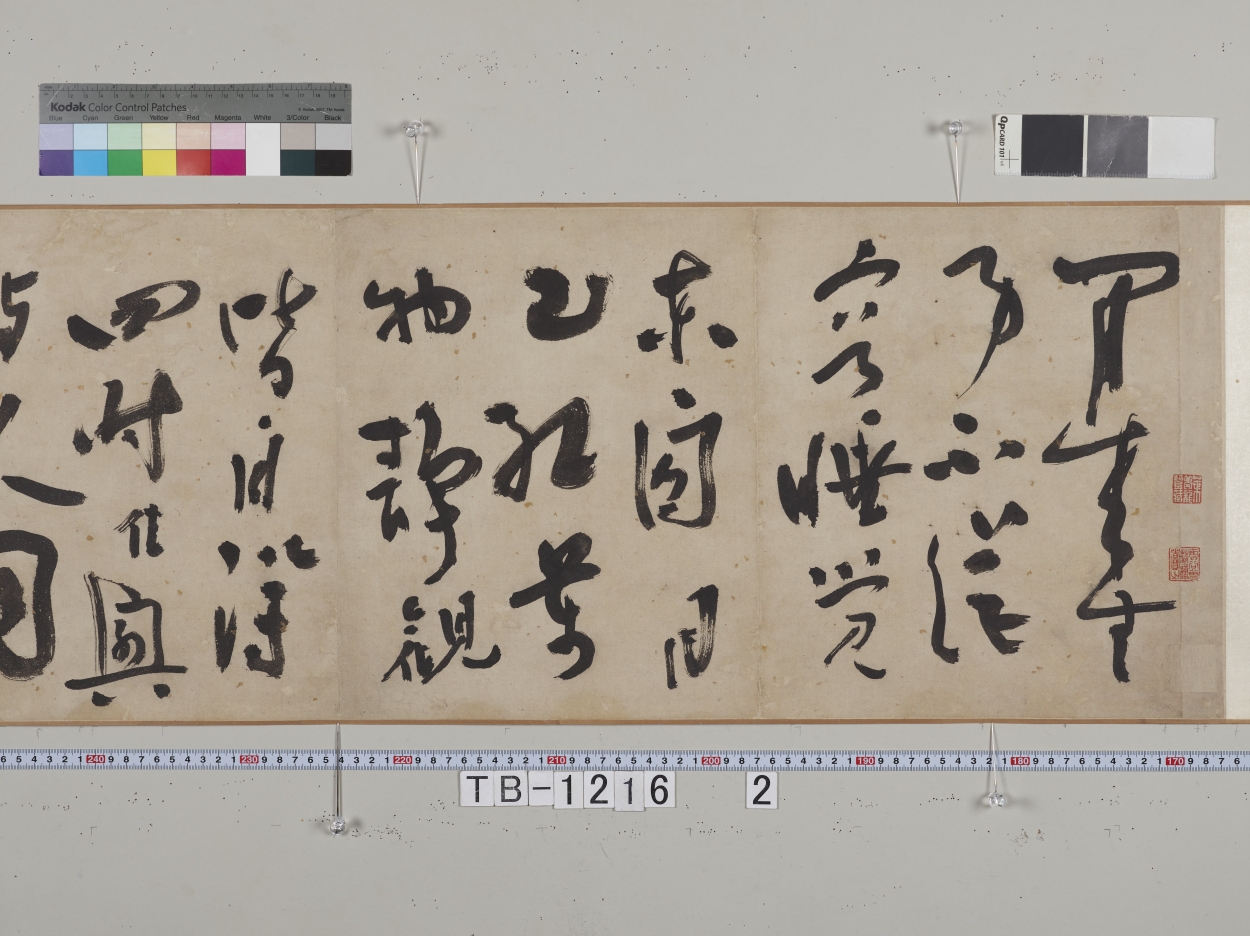 閒來無
事不從
容睡覺
東窗日
已紅萬
物靜觀
皆自得
四時佳興
與人同
Kodak Color Control Patches
Blue Cyan Green Yellow Red Magenta White 3/Color Black
QPCARD 101
240 230 220 210 200 190 180 170
TB-1216 2